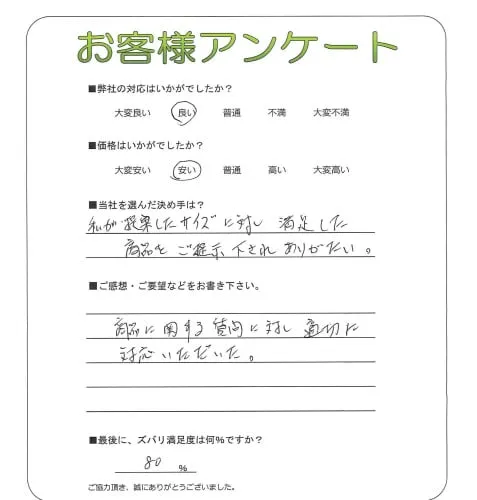 お客様アンケート
■弊社の対応はいかがでしたか？
大変良い 良い 普通 不満 大変不満
■価格はいかがでしたか？
大変安い 安い 普通 高い 大変高い
■当社を選んだ決め手は？
私が提案したサイズに対し 満足した
商品をご提示下されありがたい。
■ご感想・ご要望などをお書き下さい。
商品に関する質問に対し 適切に
対応いただいた。
■最後に、ズバリ満足度は何％ですか？
80 ％
ご協力頂き、誠にありがとうございました。